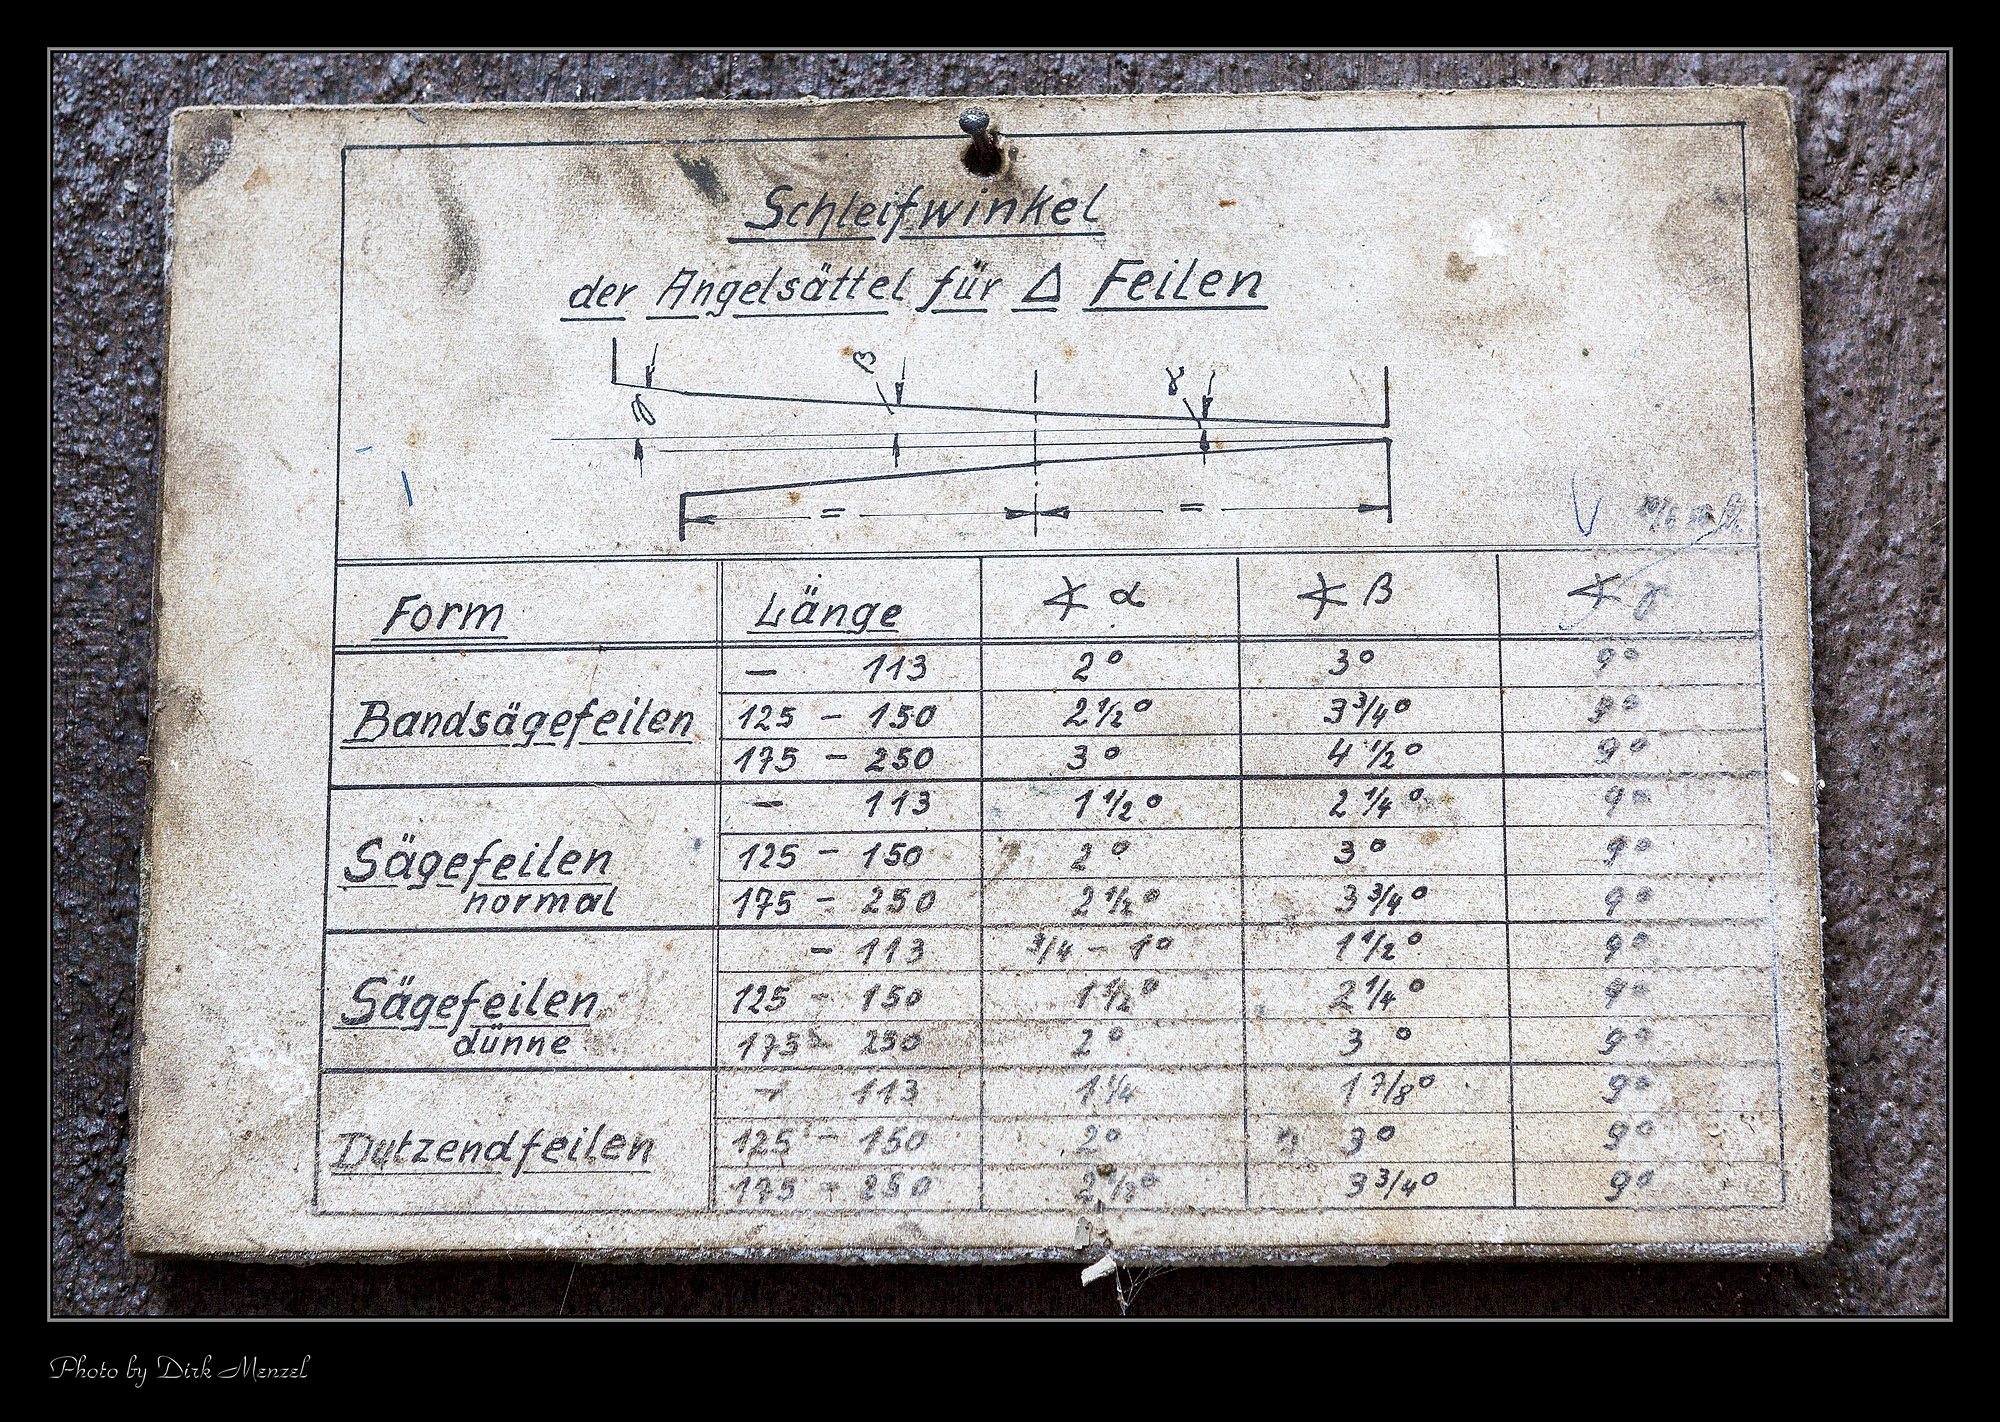 Schleifwinkel
der Angelsättel für Δ Feilen
β γ
α
= =
Form Länge ∢ α ∢ β ∢ γ
Bandsägefeilen
— 113 2° 3° 9°
125 – 150 2 1/2° 3 3/4° 9°
175 – 250 3° 4 1/2° 9°
Sägefeilen
normal
— 113 1 1/2° 2 1/4° 9°
125 – 150 2° 3° 9°
175 – 250 2 1/2° 3 3/4° 9°
Sägefeilen
dünne
– 113 3/4 – 1° 1 1/2° 9°
125 – 150 1 1/2° 2 1/4° 9°
175 – 250 2° 3° 9°
Dutzendfeilen
– 113 1 1/4 1 7/8° 9°
125 – 150 2° 3° 9°
175 – 250 2 1/2° 3 3/4° 9°
Photo by Dirk Menzel